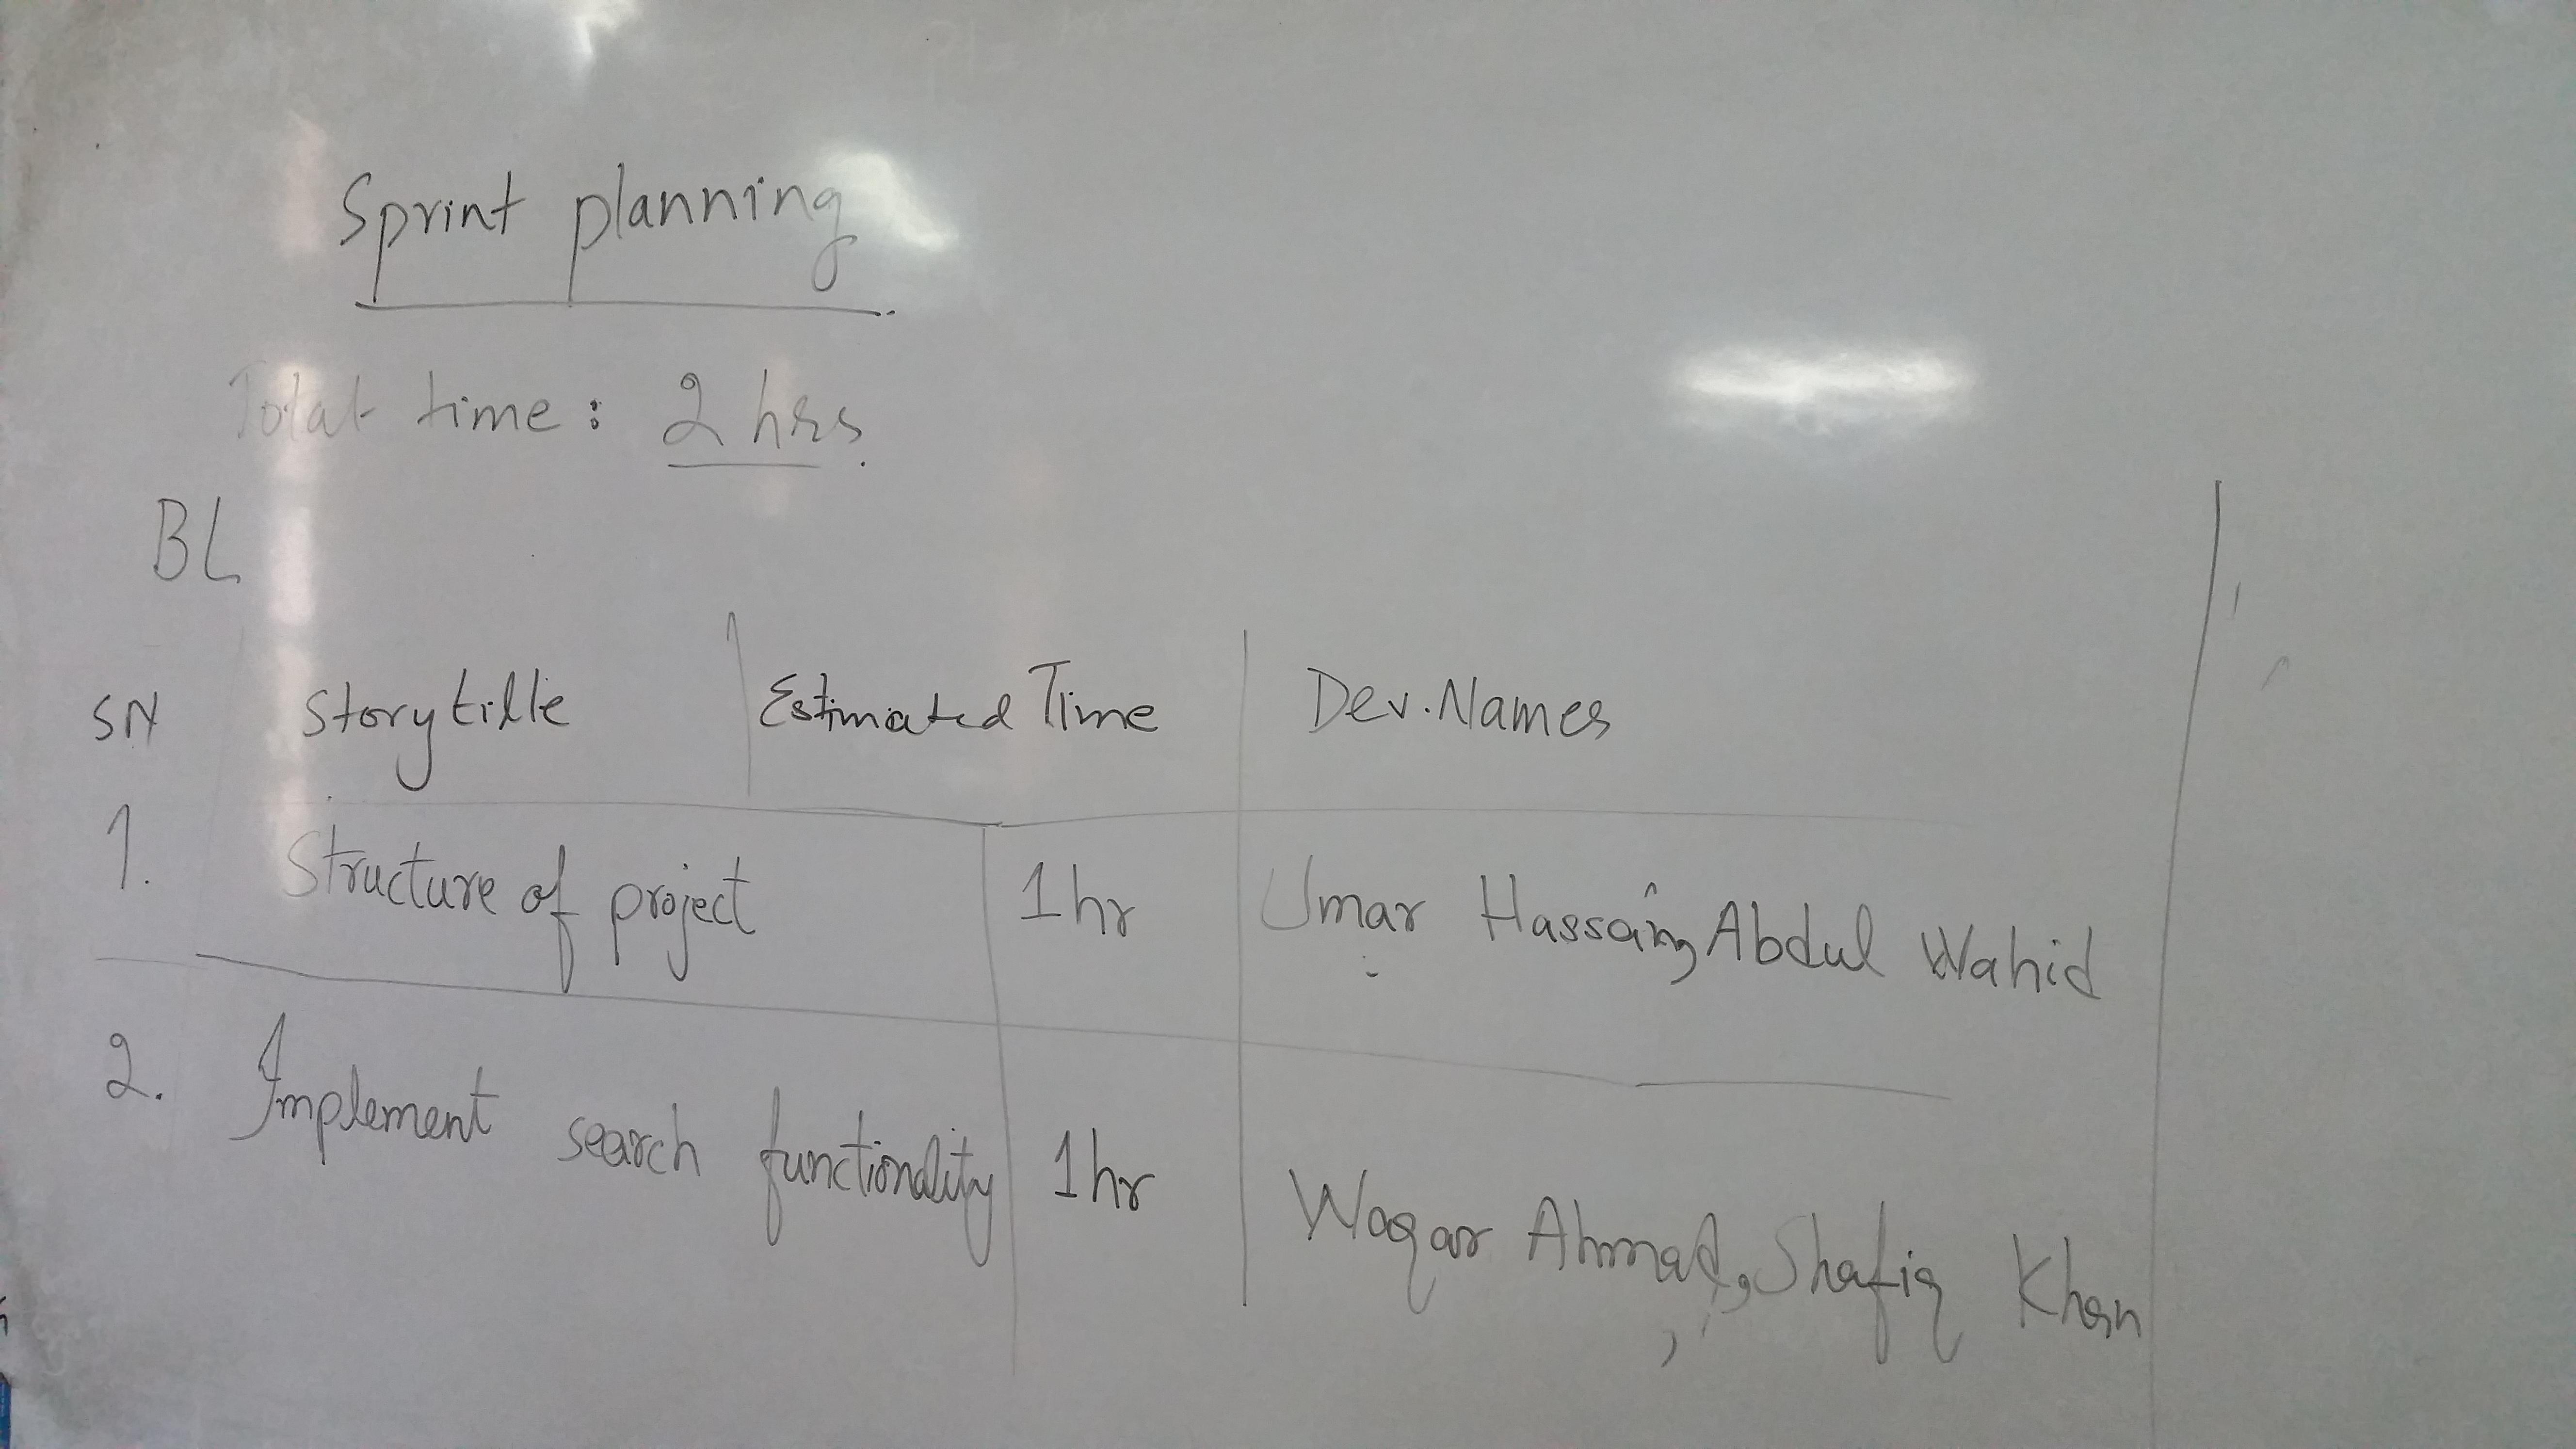 Sprint planning
Total time: 2 hrs.
BL
SN Story title Estimated Time Dev. Names
1. Structure of project 1hr Umar Hassan, Abdul Wahid
2. Implement search functionality 1hr Waqar Ahmad, Shafiq Khan